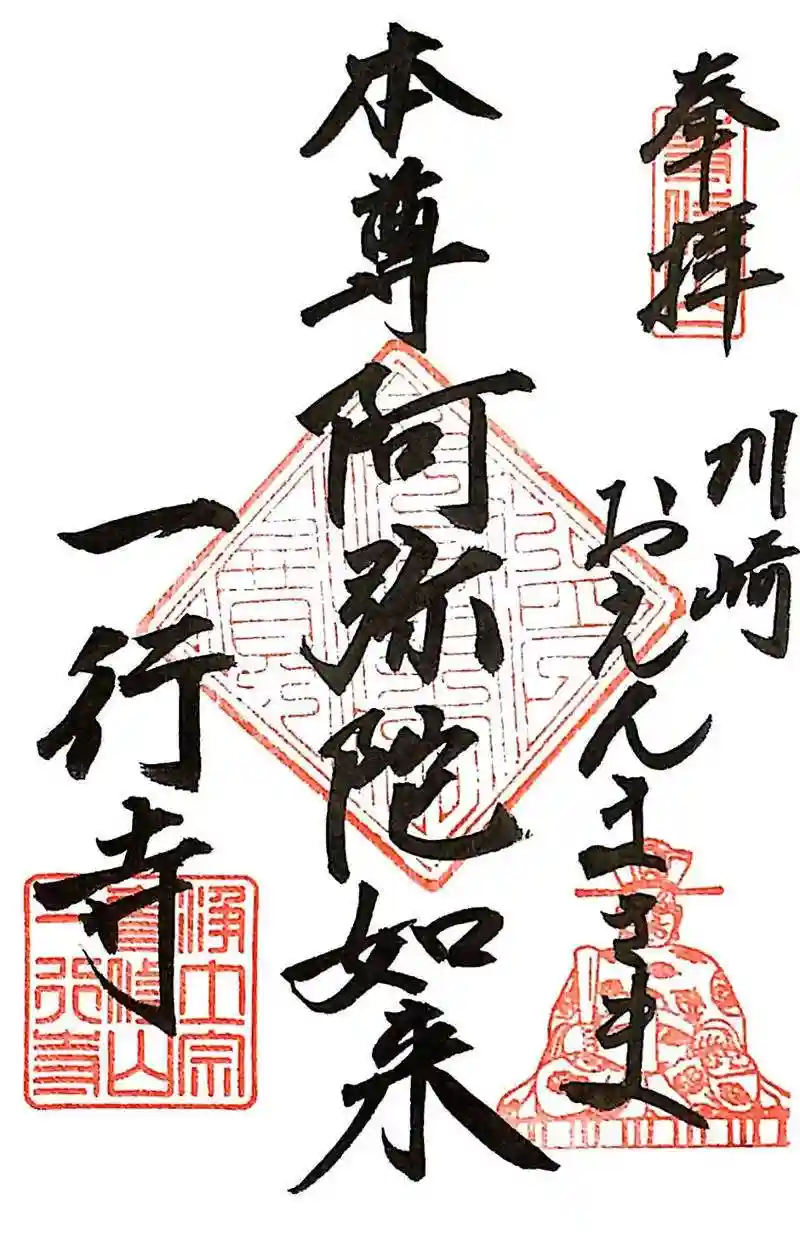 奉拝
川崎
おえんまさま
本尊阿弥陀如来
一行寺
浄土宗
専修山
一行寺